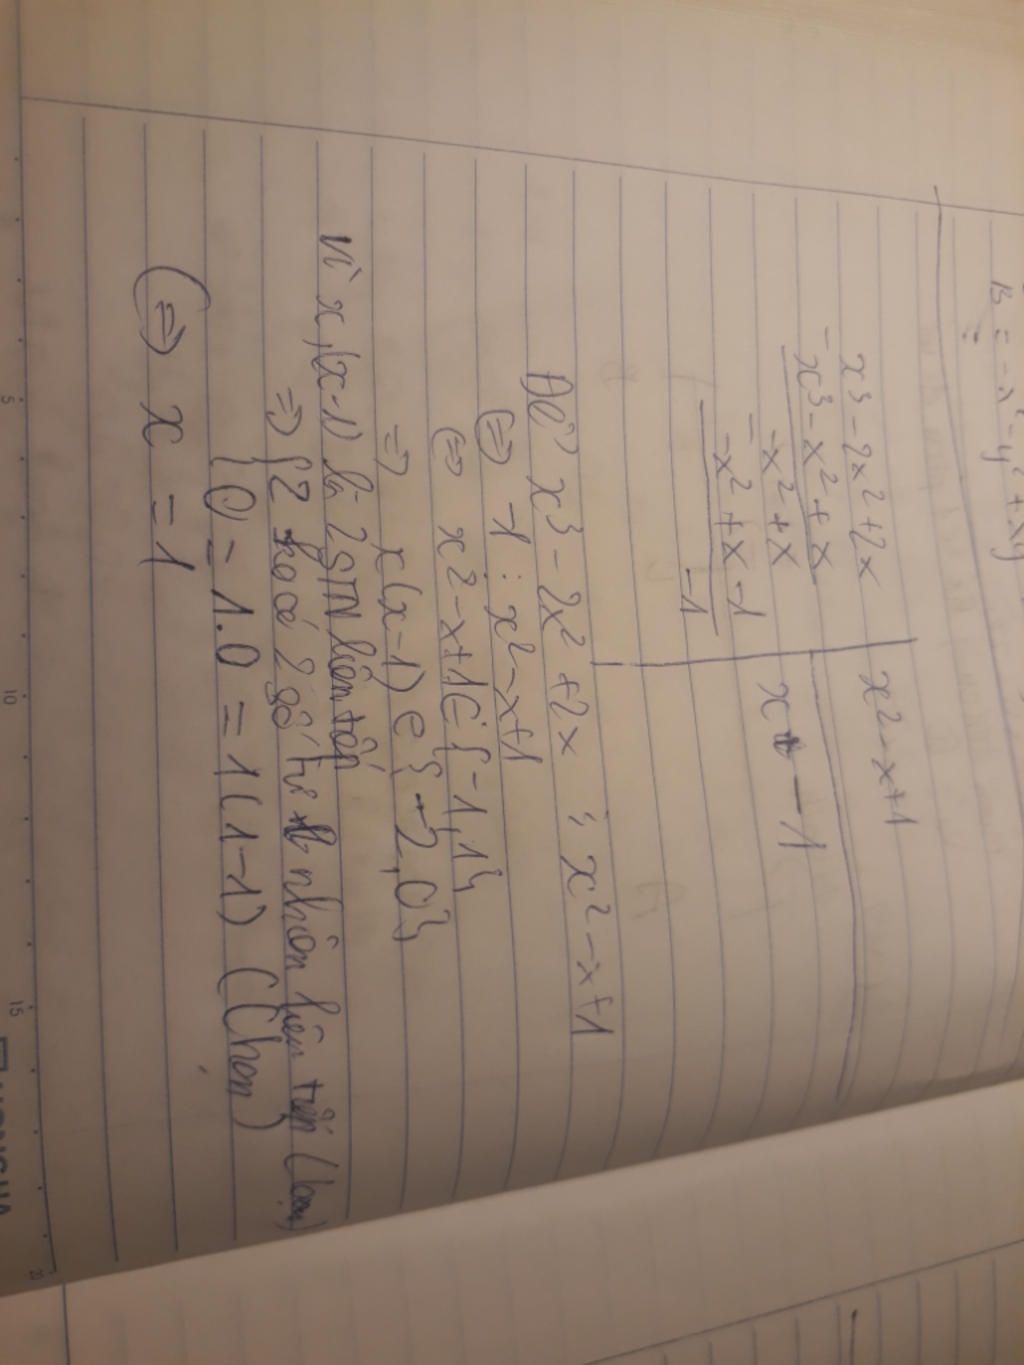 B = -x² - y² + xy
x³ - 2x² + 2x | x² - x + 1
- x³ - x² + x | x - 1
-x² + x
- -x² + x - 1
-1
Để x³ - 2x² + 2x ⋮ x² - x + 1
⇔ -1 : x² - x + 1
⇔ x² - x + 1 ∈ {-1, 1}
⇒ x(x - 1) ∈ {-2, 0}
Vì x, (x - 1) là 2 STN liên tiếp
⇒ {2 ko có 2 số tự nhiên liên tiếp (loại)
{0 = 1.0 = 1(1 - 1) (Chọn)
⇔ x = 1
5
10
15
20